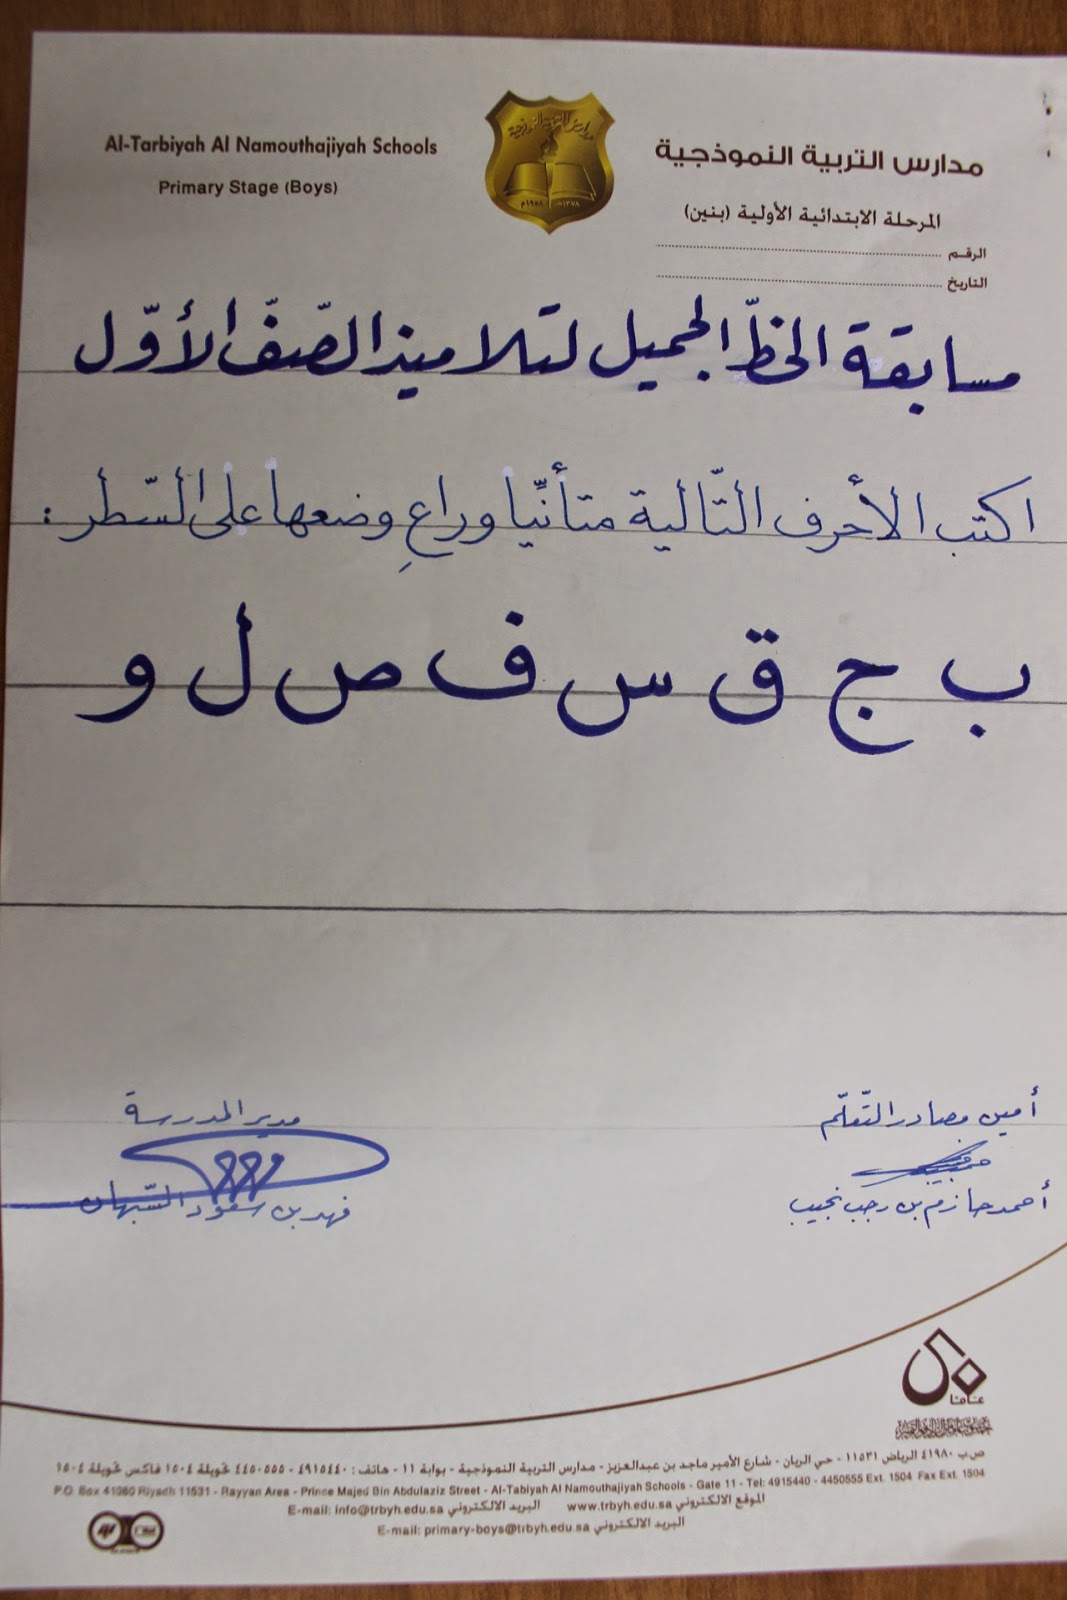 Al-Tarbiyah Al Namouthajiyah Schools
Primary Stage (Boys)
مدارس التربية النموذجية
١٣٧٨هـ ١٩٥٨م
مدارس التربية النموذجية
المرحلة الابتدائية الأولية (بنين)
الرقم
التاريخ
مسابقة الخطّ الجميل لتلاميذ الصّفّ الأوّل
اكتب الأحرف التّالية متأنّيا وراعِ وضعها على السّطر :
ب ج ق س ف ص ل و
أمين مصادر التّعلّم
أحمد حازم بن رجب نجيب
مدير المدرسة
فهد بن سعود السّبهان
عامًا
ص.ب ٤١٩٨٠ الرياض ١١٥٣١ - حي الريان - شارع الأمير ماجد بن عبدالعزيز - مدارس التربية النموذجية - بوابة ١١ - هاتف : ٤٩١٥٤٤٠ - ٤٤٥٠٥٥٥ تحويلة ١٥٠٤ فاكس تحويلة ١٥٠٤
P.O. Box 41980 Riyadh 11531 - Rayyan Area - Prince Majed Bin Abdulaziz Street - Al-Tabiyah Al Namouthajiyah Schools - Gate 11 - Tel: 4915440 - 4450555 Ext. 1504 Fax Ext. 1504
E-mail: info@trbyh.edu.sa البريد الالكتروني www.trbyh.edu.sa الموقع الالكتروني
E-mail: primary-boys@trbyh.edu.sa البريد الالكتروني